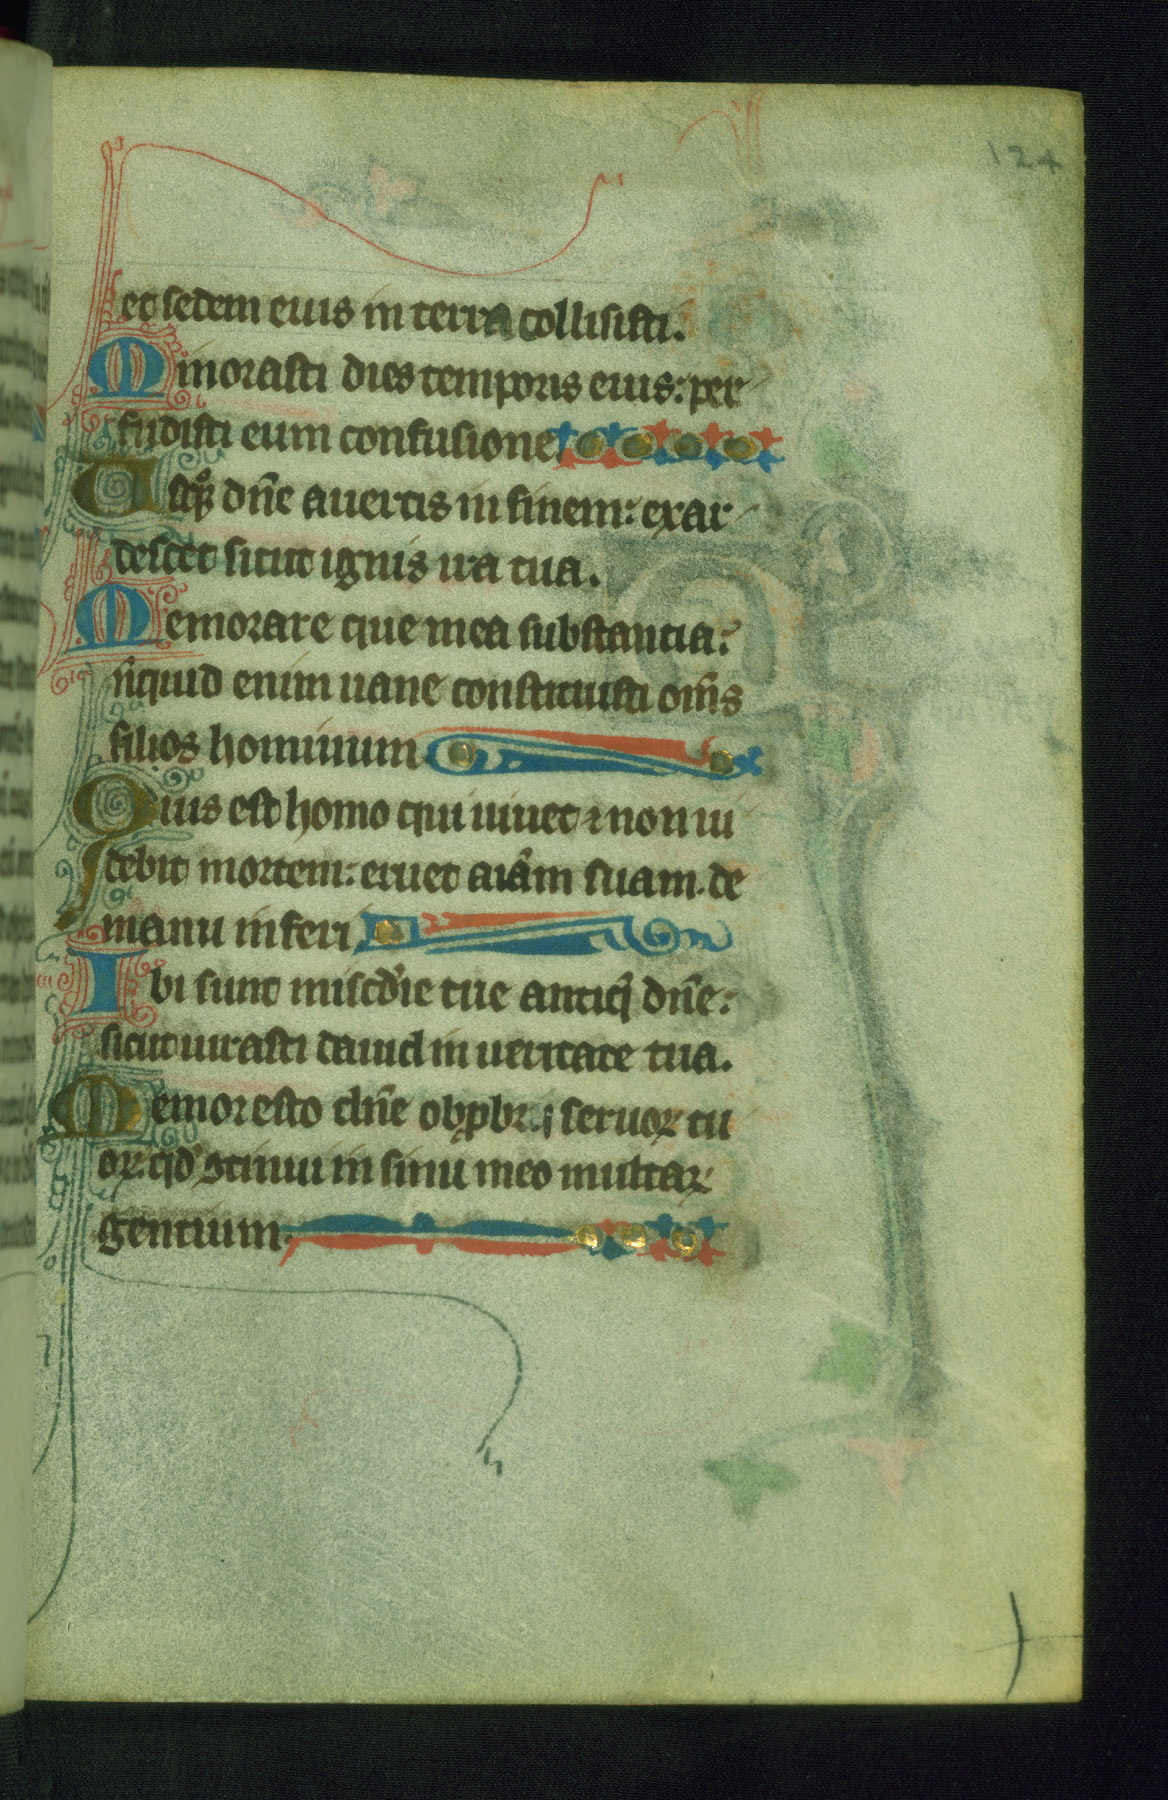 124
et sedem eius in terra collisisti.
Minorasti dies temporis eius: per
fudisti eum confusione
Usq̄ꝫ dn̄e auertis in finem: exar
descet sicut ignis ira tua.
Memorare que mea substantia:
nͥquid enim uane constituisti om̄s
filios hominum
Quis est homo qui uiuet ⁊ non ui
debit mortem: eruet aīam suam de
manu inferi
Ibi sunt misc̄die tue antiq̄ dn̄e:
sicut iurasti dauid in ueritate tua.
Memor esto dn̄e seruoꝝ tu
oꝝ: qd̓ ꝯtinui in sinu meo multaꝝ
gentium